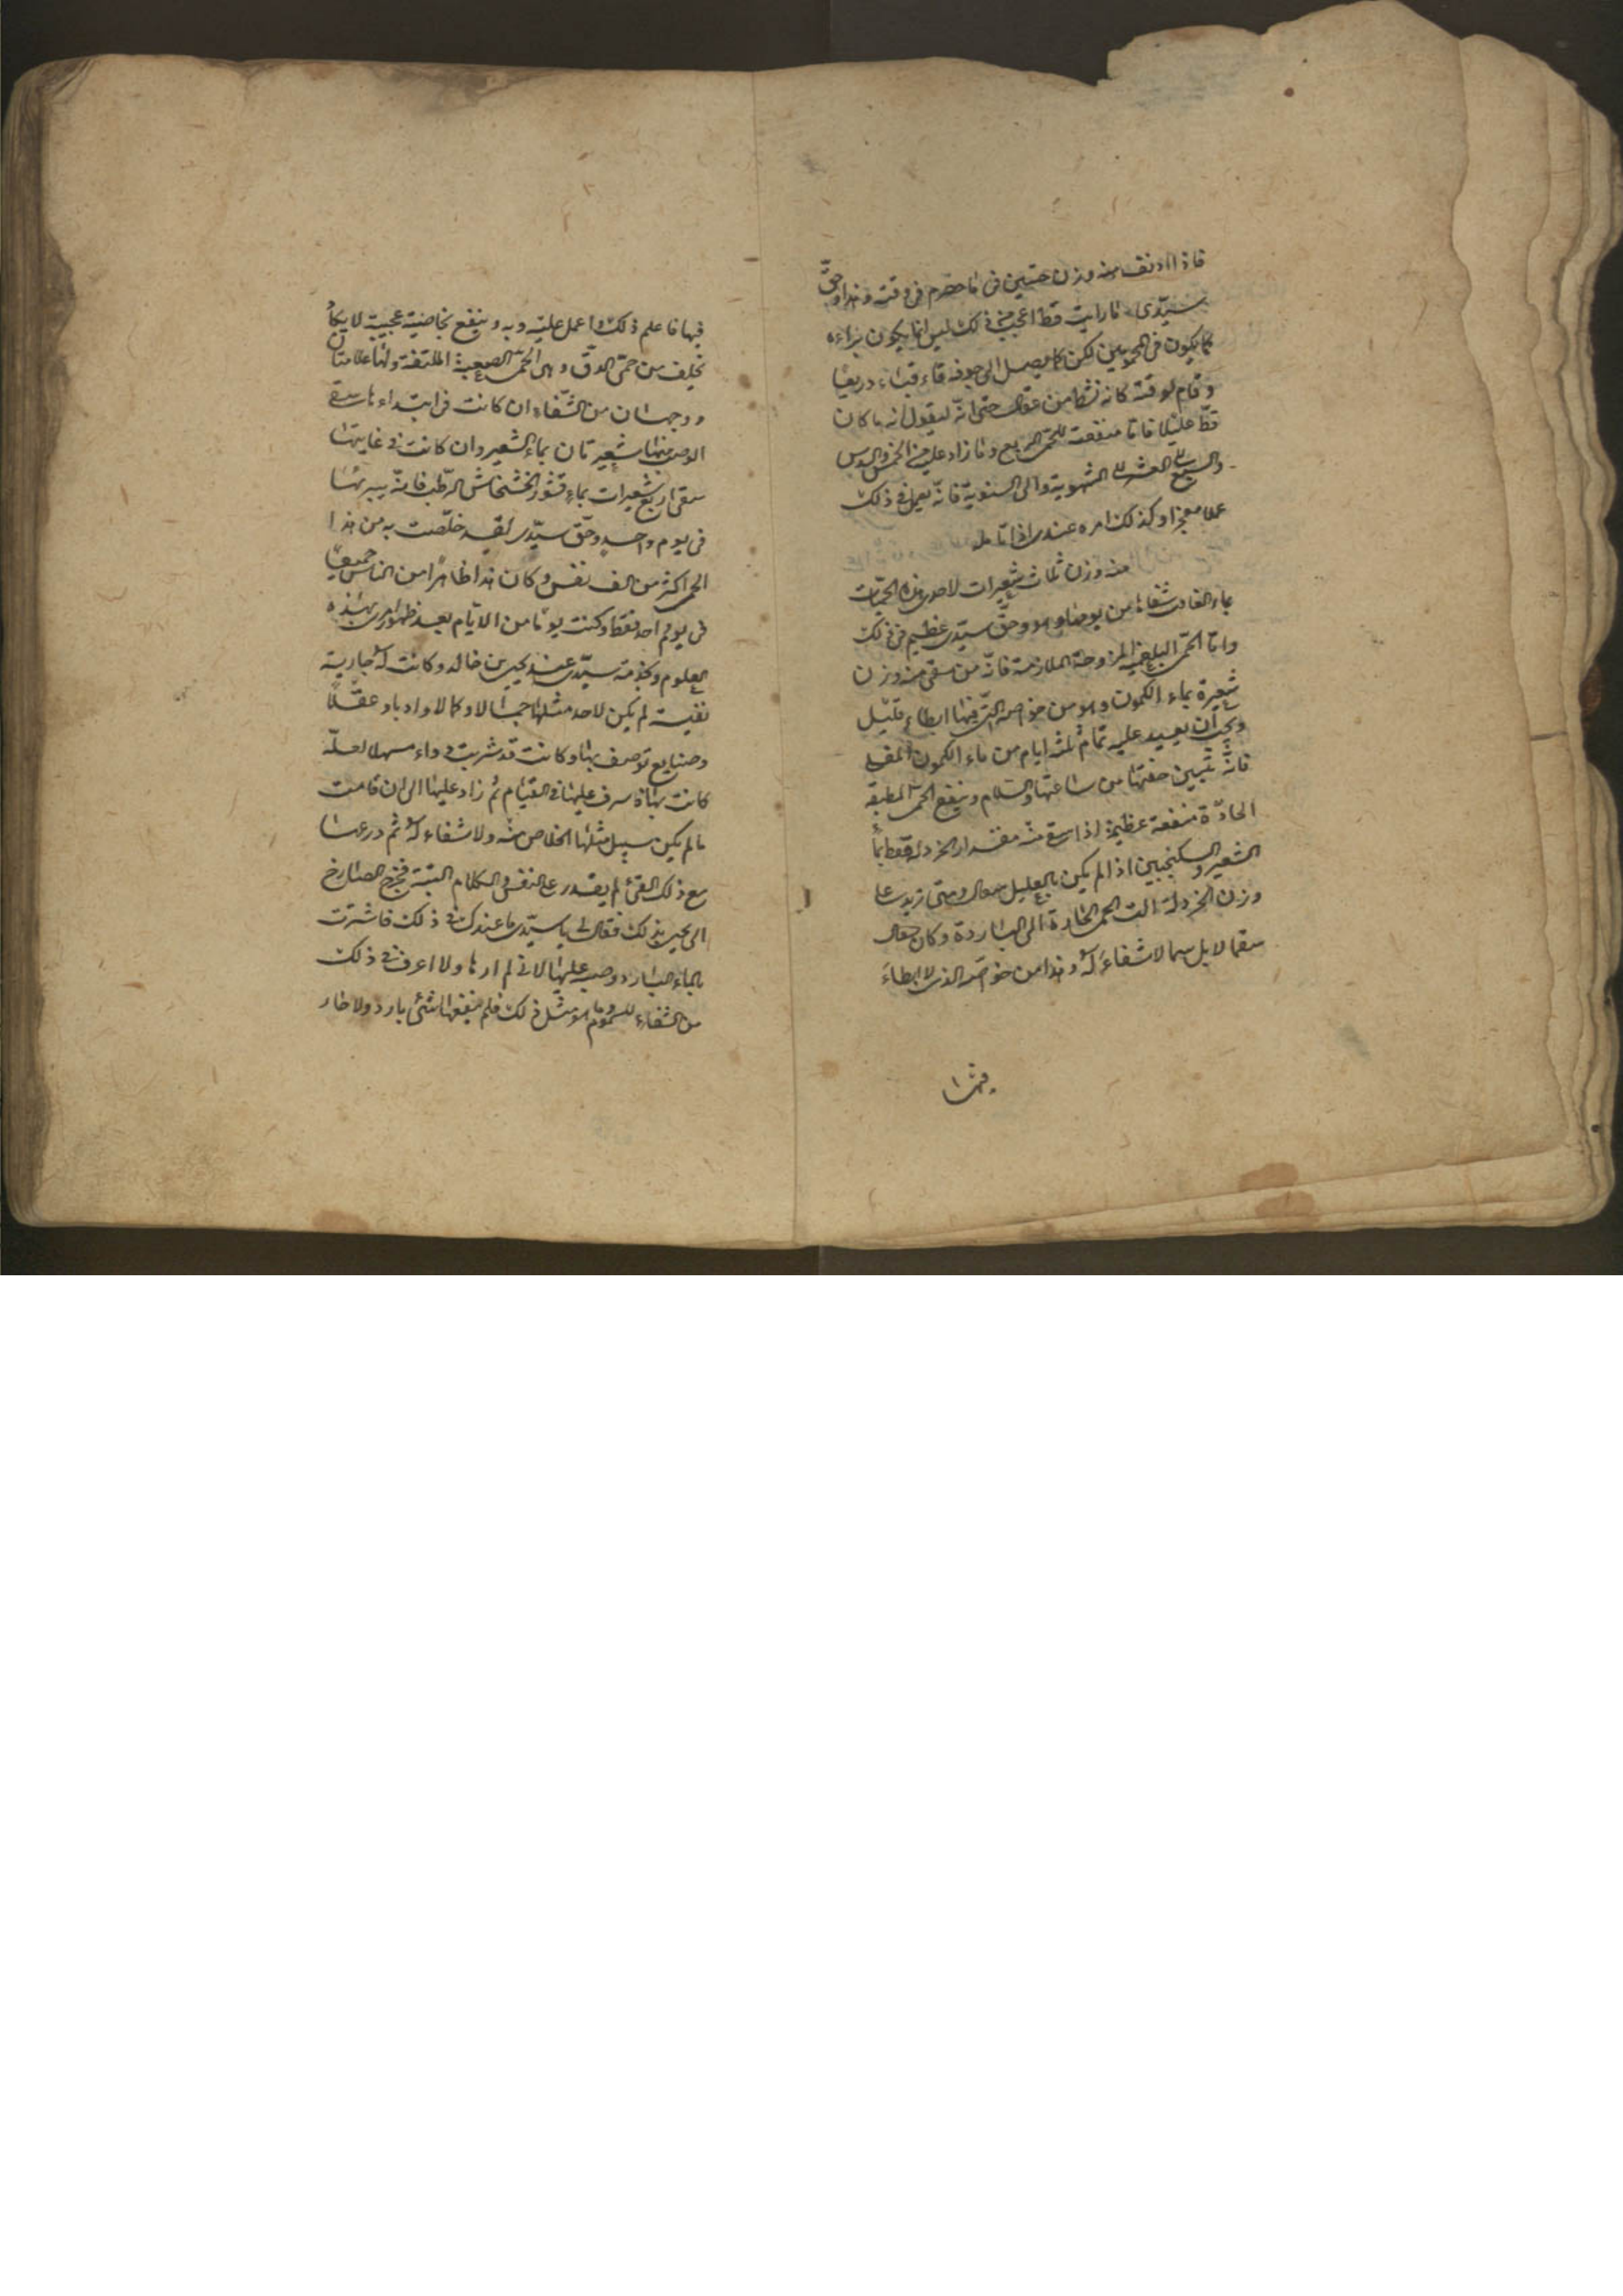 فاذا ادنف منه وزن حبتين فى ماء حصرم فى وقته وهذا وحق
سيدى ما رايت قط اعجب من ذلك ليس انما يكون براءه
كما يكون فى المحمومين لكن كما يصل الى جوفه قاء قياء ذريعا
وقام لوقته كانه نشط من عقال حتى انه ليقول انه ما كان
قط عليلا فاما منفعته للحمى الربع وما زاد على من الخمس والسدس
والسبع الى العشر الى الشهرية والى السنوية فانه يعمل فى ذلك
عملا معجزا وكذلك امره عندى اذا تامله
منه وزن ثلاث شعيرات لاحدى هذه الحميات
بماء الغافت شفاها من يومها وهو وحق سيدى عظيم فى ذلك
واما الحمى البلغمية المزاوجة الملازمة فانه من سقى منه وزن
شعيرة بماء الكمون وهو من خواصه التى فيها ابطاء قليل
ويجب ان يعيد عليه تمام ثلثه ايام من ماء الكمون المغلى
فانه تبين خفتها من ساعتها والسلام وينفع الحمى المطبقة
الحادة منفعة عظيمة اذا سقى منه مقدار الخردلة فقط بماء
الشعير والسكنجبين اذا لم يكن بالعليل سعال ومتى زيد على
وزن الخردلة الت الحمى الحارة الى الباردة وكان سعال
سقما لا بل سما لا شفاء له وهذا من خواصه الذى لا ابطاء
فيها
فيها فاعلم ذلك واعمل عليه وبه وينفع بخاصية عجيبة لا يكاد
تخلف من حمى الدق وهى الحمى الصعبة المتلفة ولها علامتان
ووجهان من الشفاء ان كانت فى ابتداءها سقى
الوصى منها شعيرتان بماء الشعير وان كانت فى غايتها
سقى اربع شعيرات بماء قشور الخشخاش الرطب فانه يبريها
فى يوم واحد وحق سيدى لقد خلصت به من هذا
الحمى اكثر من الف نفس وكان هذا ظاهرا من الناس جميعا
فى يوم احد فقط وكنت يوما من الايام بعد ظهور امرى بهذه
العلوم وبخدمة سيدى عند يحيى بن خالد وكانت له جارية
نفيسة لم يكن لاحد مثلها جمالا وكمالا وادبا وعقلا
وصنايع توصف بها وكانت قد شربت دواء مسهلا لعلة
كانت بها فاسرف عليها فى القيام ثم زاد عليها الى ان قامت
ما لم يكن سبيل مثلها الخلاص منه ولا شفاء له ثم ذرعها
مع ذلك القئ لم يقدر على النفس والكلام البتة فخرج الصارخ
الى يحيى بذلك فقال لى يا سيدى ما عندك فى ذلك فاشرت
بالماء البارد وصبه عليها لانى لم ارها ولا اعرف فى ذلك
من الشفاء للسموم وما هو مثل ذلك فلم ينفعها شئ بارد ولا حار